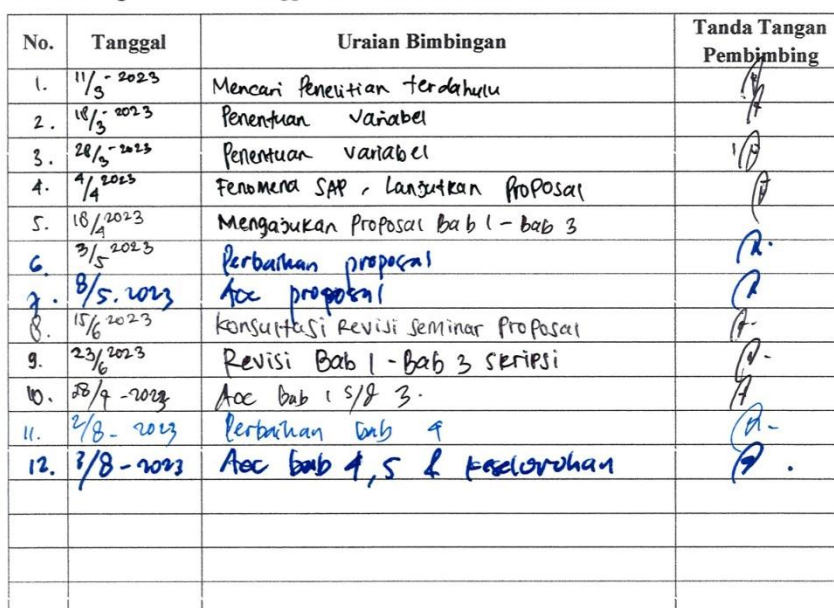 No. Tanggal Uraian Bimbingan Tanda Tangan Pembimbing
1. 11/3-2023 Mencari Penelitian terdahulu
2. 18/3-2023 Penentuan Variabel
3. 28/3-2023 Penentuan Variabel
4. 4/4 2023 Fenomena SAP, Lanjutkan Proposal
5. 18/4 2023 Mengajukan Proposal Bab 1 - Bab 3
6. 3/5 2023 Perbaikan proposal
7. 8/5.2023 Acc proposal
8. 15/6 2023 Konsultasi Revisi Seminar Proposal
9. 23/6 2023 Revisi Bab 1 - Bab 3 Skripsi
10. -2023 Acc Bab 1 s/d 3.
11. 2/8-2023 Perbaikan bab 4
12. /8-2023 Acc bab 4,5 & keseluruhan